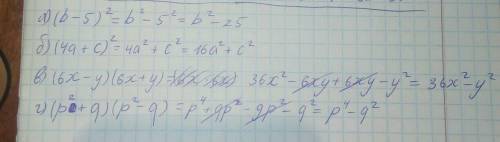 а) (b-5)² = b² - 5² = b² - 25
б) (4a + c)² = 4a² + c² = 16a² + c²
в) (6x - y)(6x + y) = 36x² - 6xy + 6xy - y² = 36x² - y²
г) (p² + q)(p² - q) = p⁴ + qp² - qp² - q² = p⁴ - q²